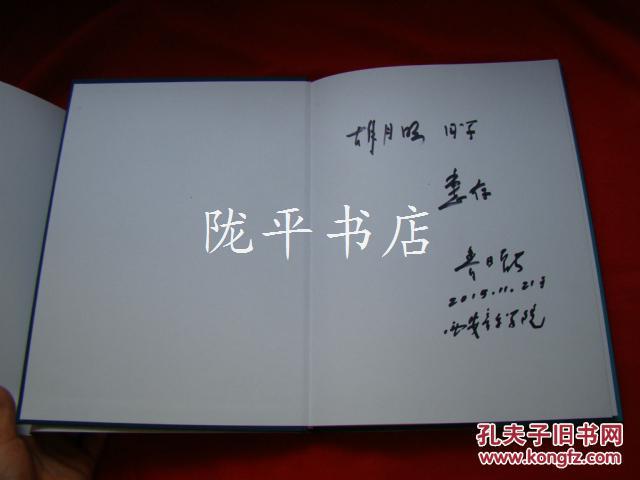 胡月明 同学
惠存
2015.11.21于
西安音乐学院
陇平书店
孔夫子旧书网
www.kongfz.com